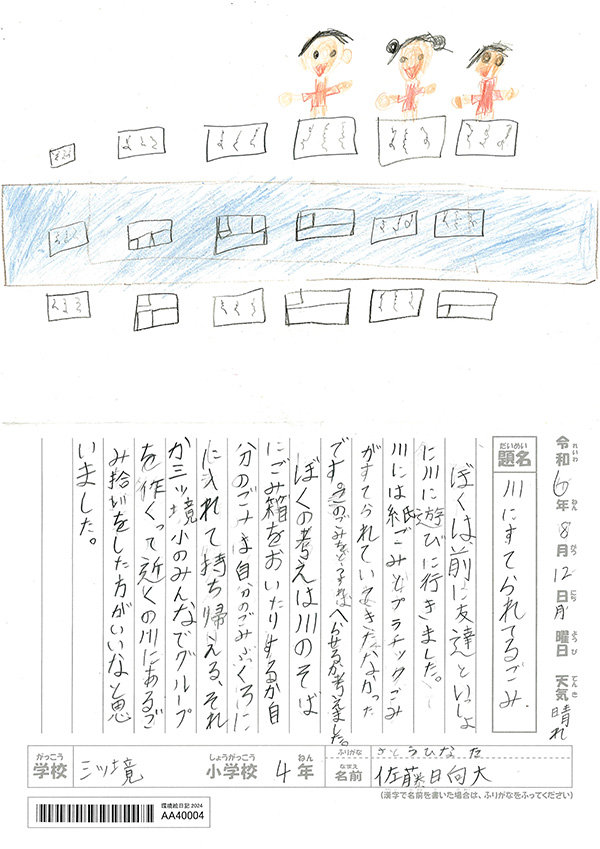 令和6年8月12日月曜日 天気晴れ
れいわ ねん がつ にち ようび てんき
だいめい
題名 川にすてられてるごみ.
ぼくは前に友達といっしょ
に川に遊びに行きました。
川には紙ごみとプラチックごみ
がすてられていてきたなかった
です。このごみをどうすればへらせるか考えました。
ぼくの考えは川のそば
にごみ箱をおいたりするか自
分のごみは自分のごみぶくろに
に入れて持ち帰える、それ
か三ツ境小のみんなでグループ
を作くって近くの川にあるご
み拾いをした方がいいなと思
いました。
がっこう しょうがっこう ねん
学校 三ツ境 小学校 4年
ふりがな さとうひなた
なまえ
名前 佐藤日向大
(漢字で名前を書いた場合は、ふりがなをふってください)
環境絵日記2024
AA40004